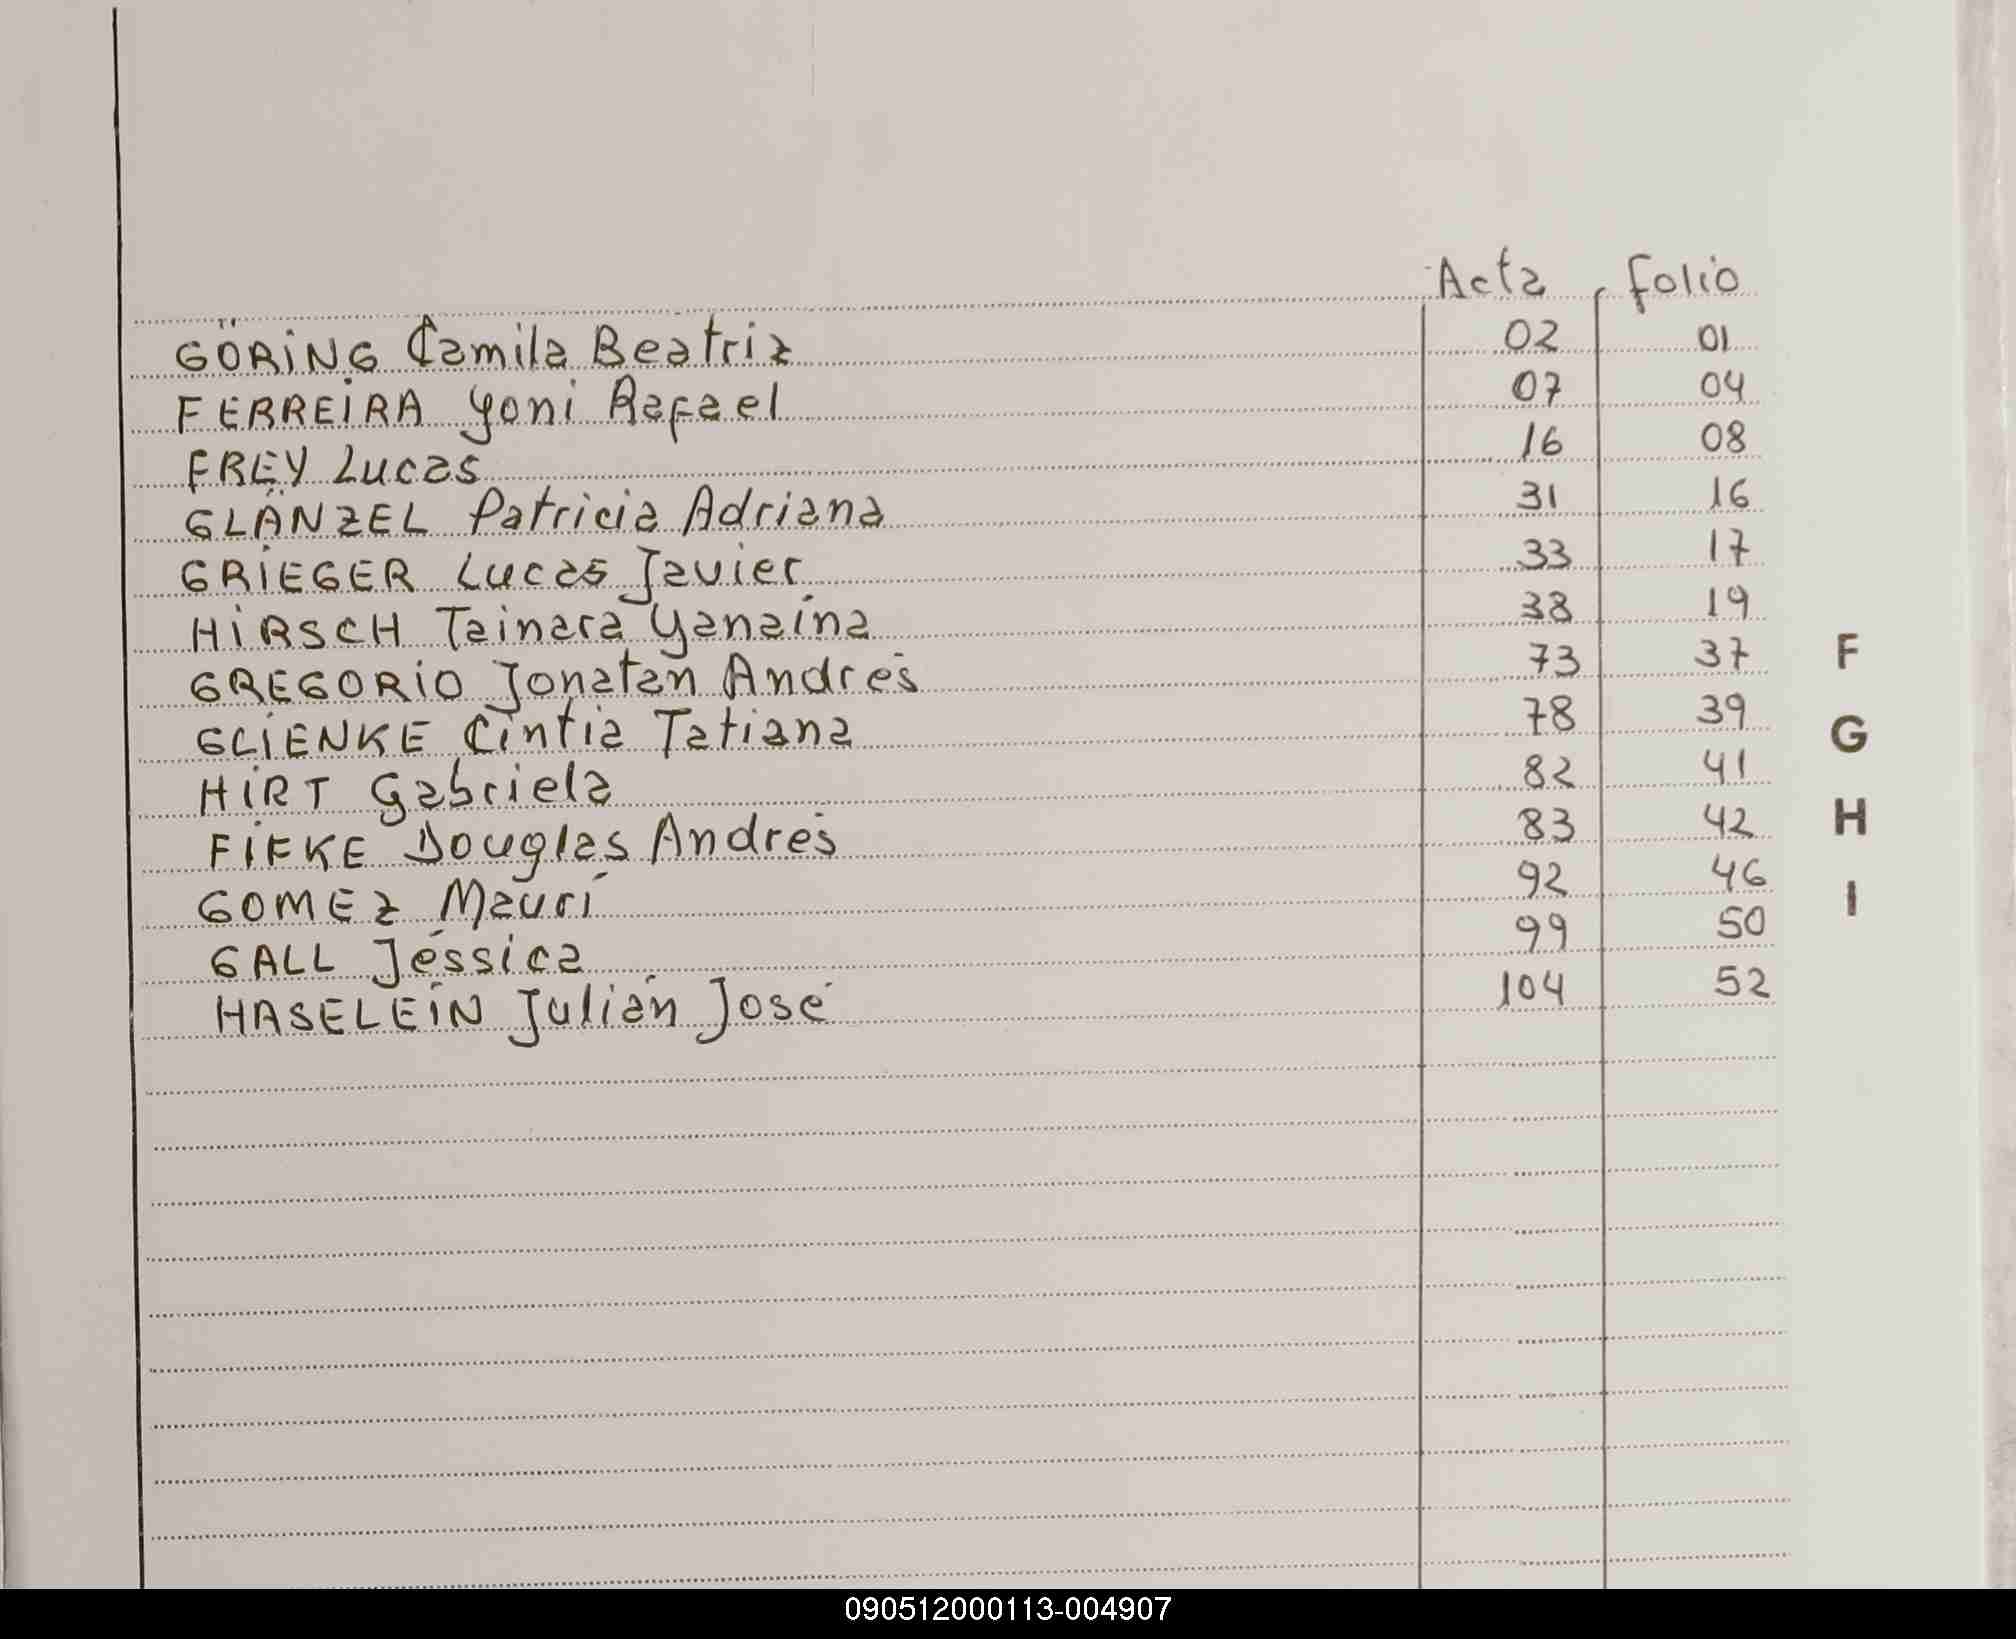 Acta Folio
GÖRING Camila Beatriz 02 01
FERREIRA Yoni Rafael 07 04
FREY Lucas 16 08
GLÄNZEL Patricia Adriana 31 16
GRIEGER Lucas Javier 33 17
HIRSCH Tainara Yanaína 38 19
GREGORIO Jonatan Andrés 73 37
GLIENKE Cintia Tatiana 78 39
HIRT Gabriela 82 41
FIFKE Douglas Andrés 83 42
GOMEZ Maurí 92 46
GALL Jéssica 99 50
HASELEIN Julián José 104 52
F
G
H
I
090512000113-004907